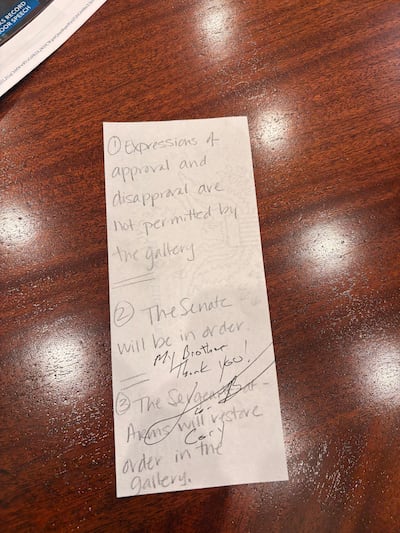 AS RECORD
OOR SPEECH
① Expressions of
approval and
disapproval are
not permitted by
the gallery
② The Senate
will be in order.
My Brother
Thank you!
③ The Sergeant-at-
Arms will restore
Cory
order in the
gallery.